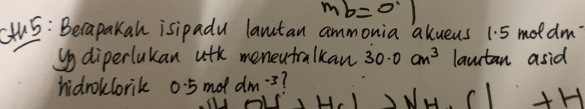 mb=0.1
Cth 5: Berapakah isipadu larutan ammonia akueus 1.5 mol dm⁻
yg diperlukan utk meneutralkan 30.0 cm³ larutan asid
hidroklorik 0.5 mol dm⁻³?